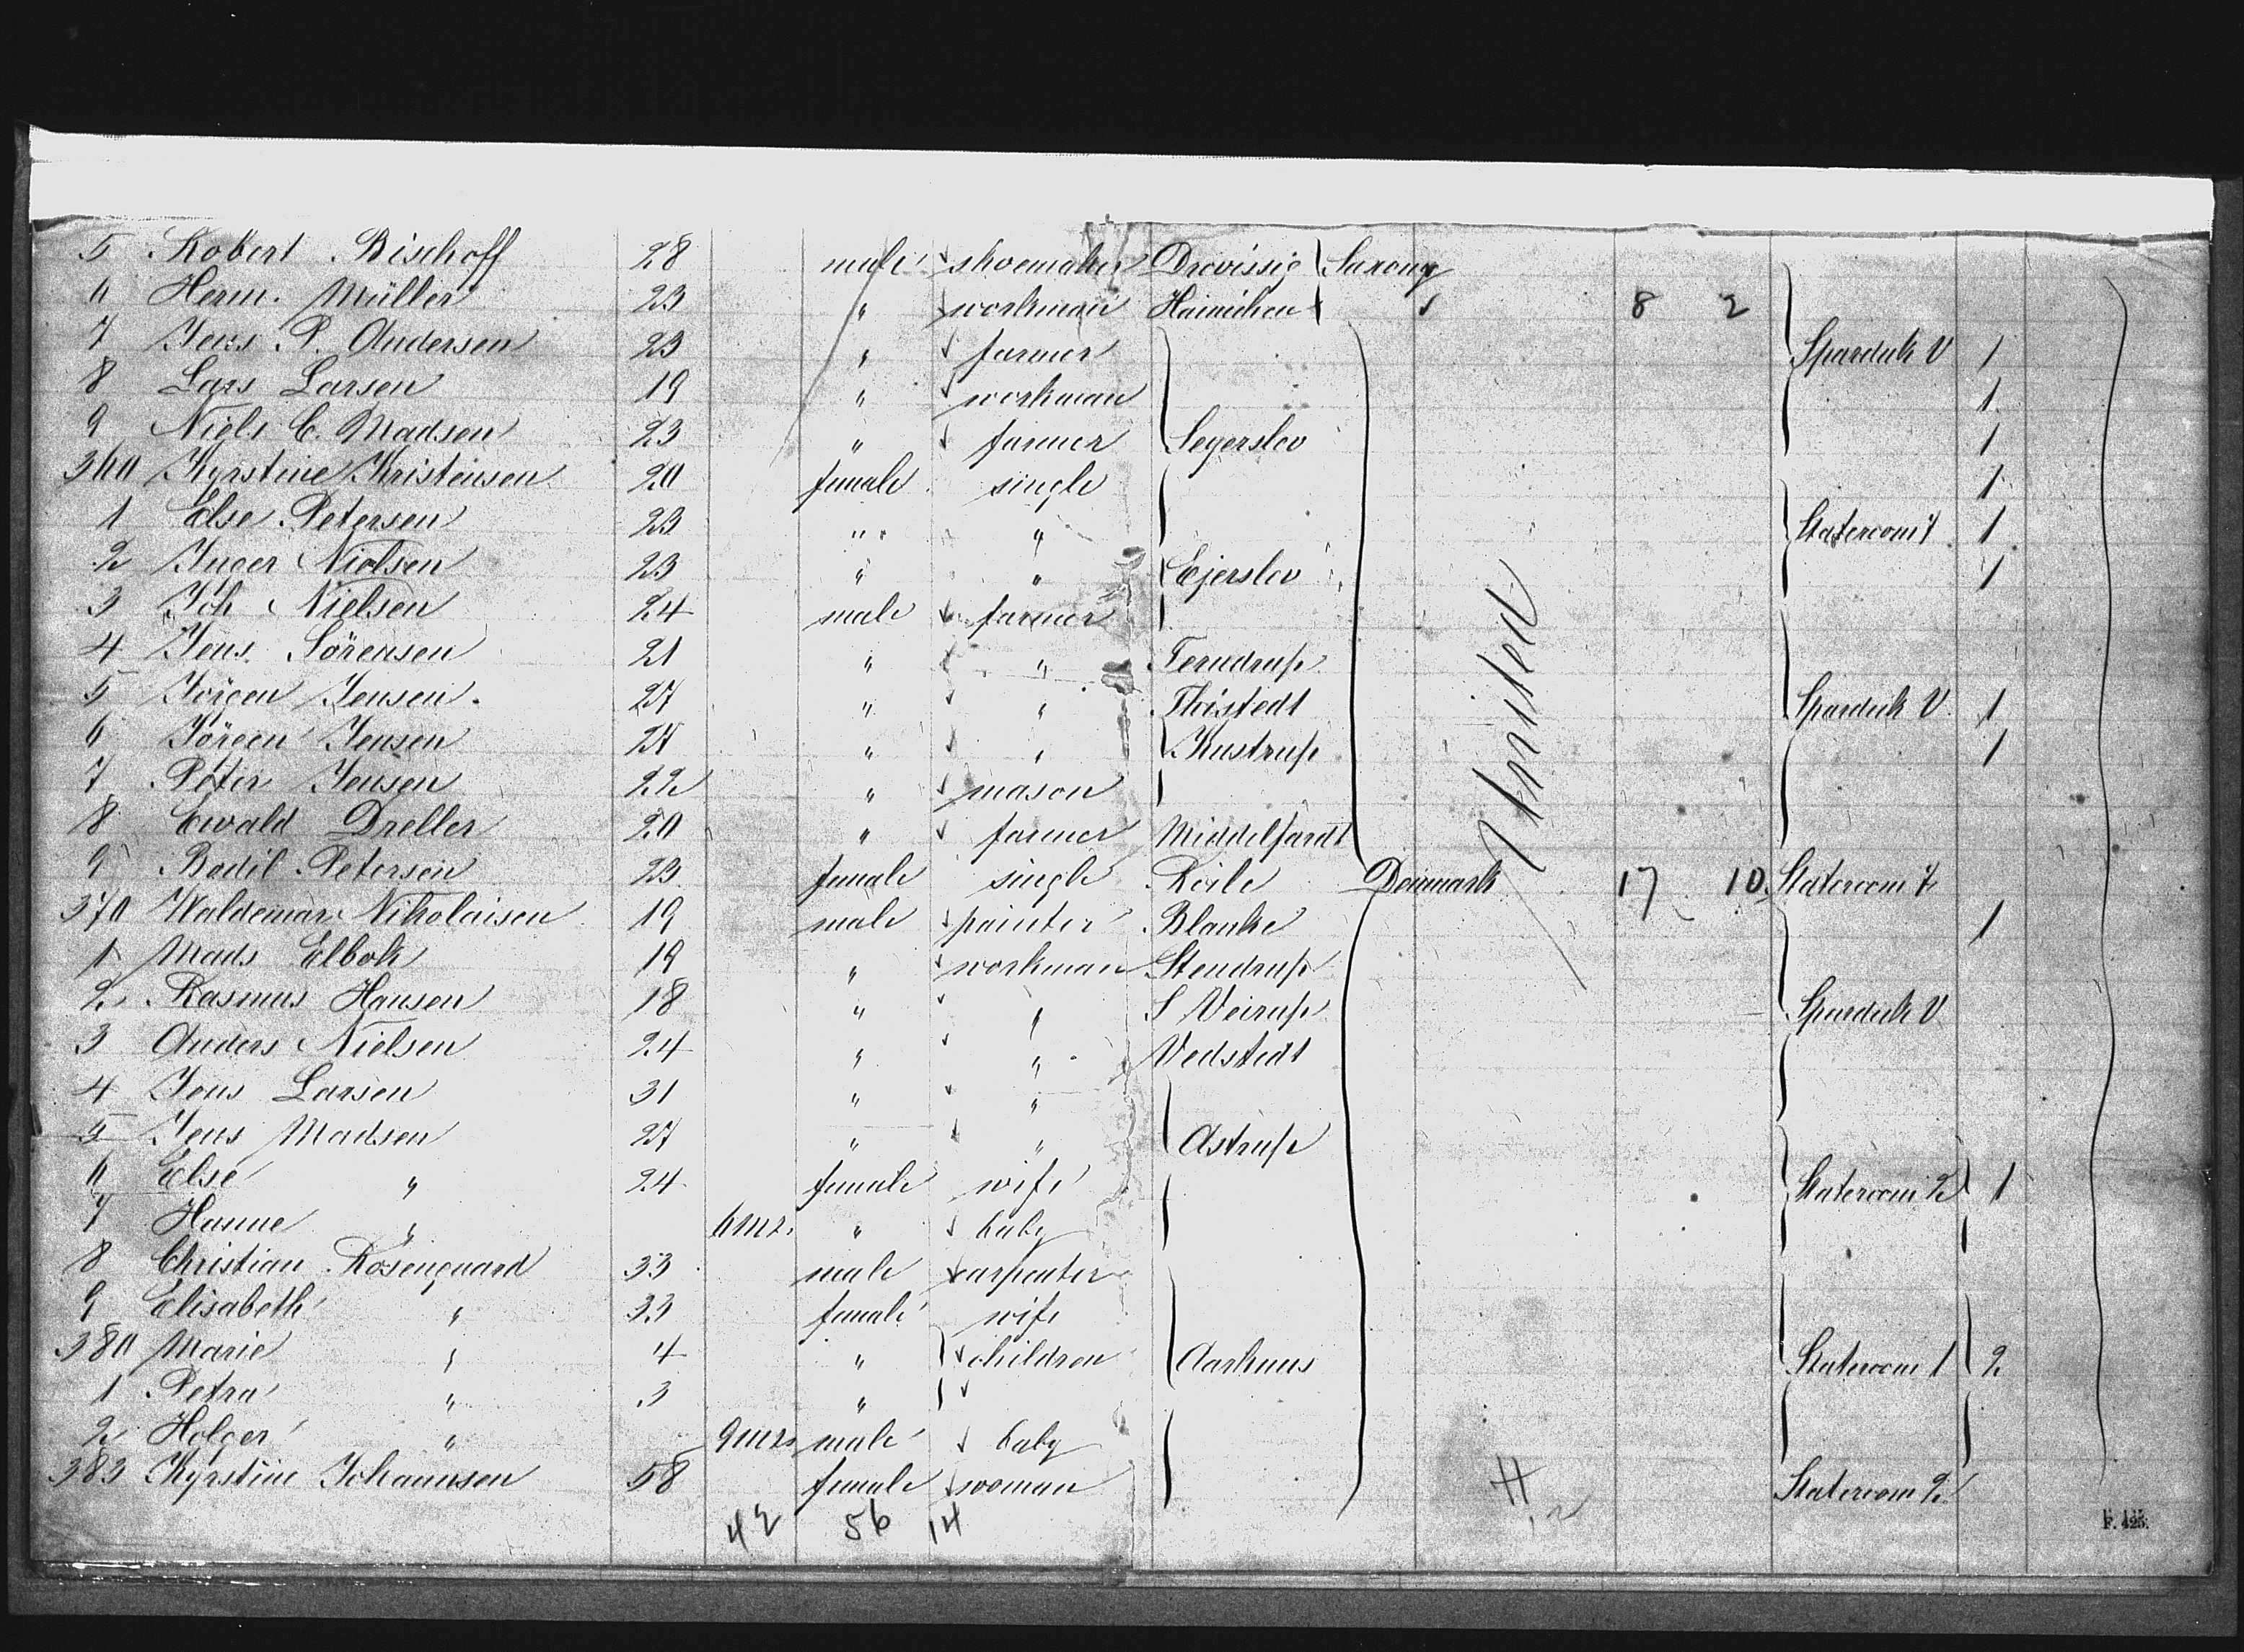 5 Robert Bischoff 28 male shoemaker Droissig Saxony
6 Herm. Müller 23 " workman Hainichen " 8 2
7 Jens P. Andersen 23 " farmer Spardeck V 1
8 Lars Larsen 19 " workman 1
9 Niels C. Madsen 23 " farmer Segerslev 1
360 Kyrstine Kristensen 20 female single 1
1 Else Petersen 23 " " Stateroom 7 1
2 Inger Nielsen 23 " " Ejerslev 1
3 Joh Nielsen 24 male farmer
4 Jens Sörensen 21 " " Terndrup
5 Jörgen Jensen 27 " " Thistedt Spardeck V 1
6 Jörgen Jensen 27 " " Kustrup 1
7 Peter Jensen 22 " mason
8 Ewald Dreller 20 " farmer Middelfardt
9 Bodil Petersen 23 female single Roile Denmark 17 10 Stateroom 7
370 Waldemar Nikolaisen 19 male painter Blanke 1
1 Mads Elbok 19 " workman Stendrup
2 Rasmus Hansen 18 " " S Veirup Spardeck V
3 Anders Nielsen 24 " " Vedstedt
4 Jens Larsen 31 " "
5 Jens Madsen 27 " " Astrup
6 Else " 24 female wife Stateroom 2 1
7 Hanne " 6 mts. " baby
8 Christian Rosengaard 33 male carpenter
9 Elisabeth " 33 female wife
380 Marie " 4 " children Aarhuus Stateroom 1 2
1 Petra " 3 "
2 Holger " 9 mts male baby
383 Kyrstine Johannsen 58 female woman Stateroom 2
42 56 14
F. 425.